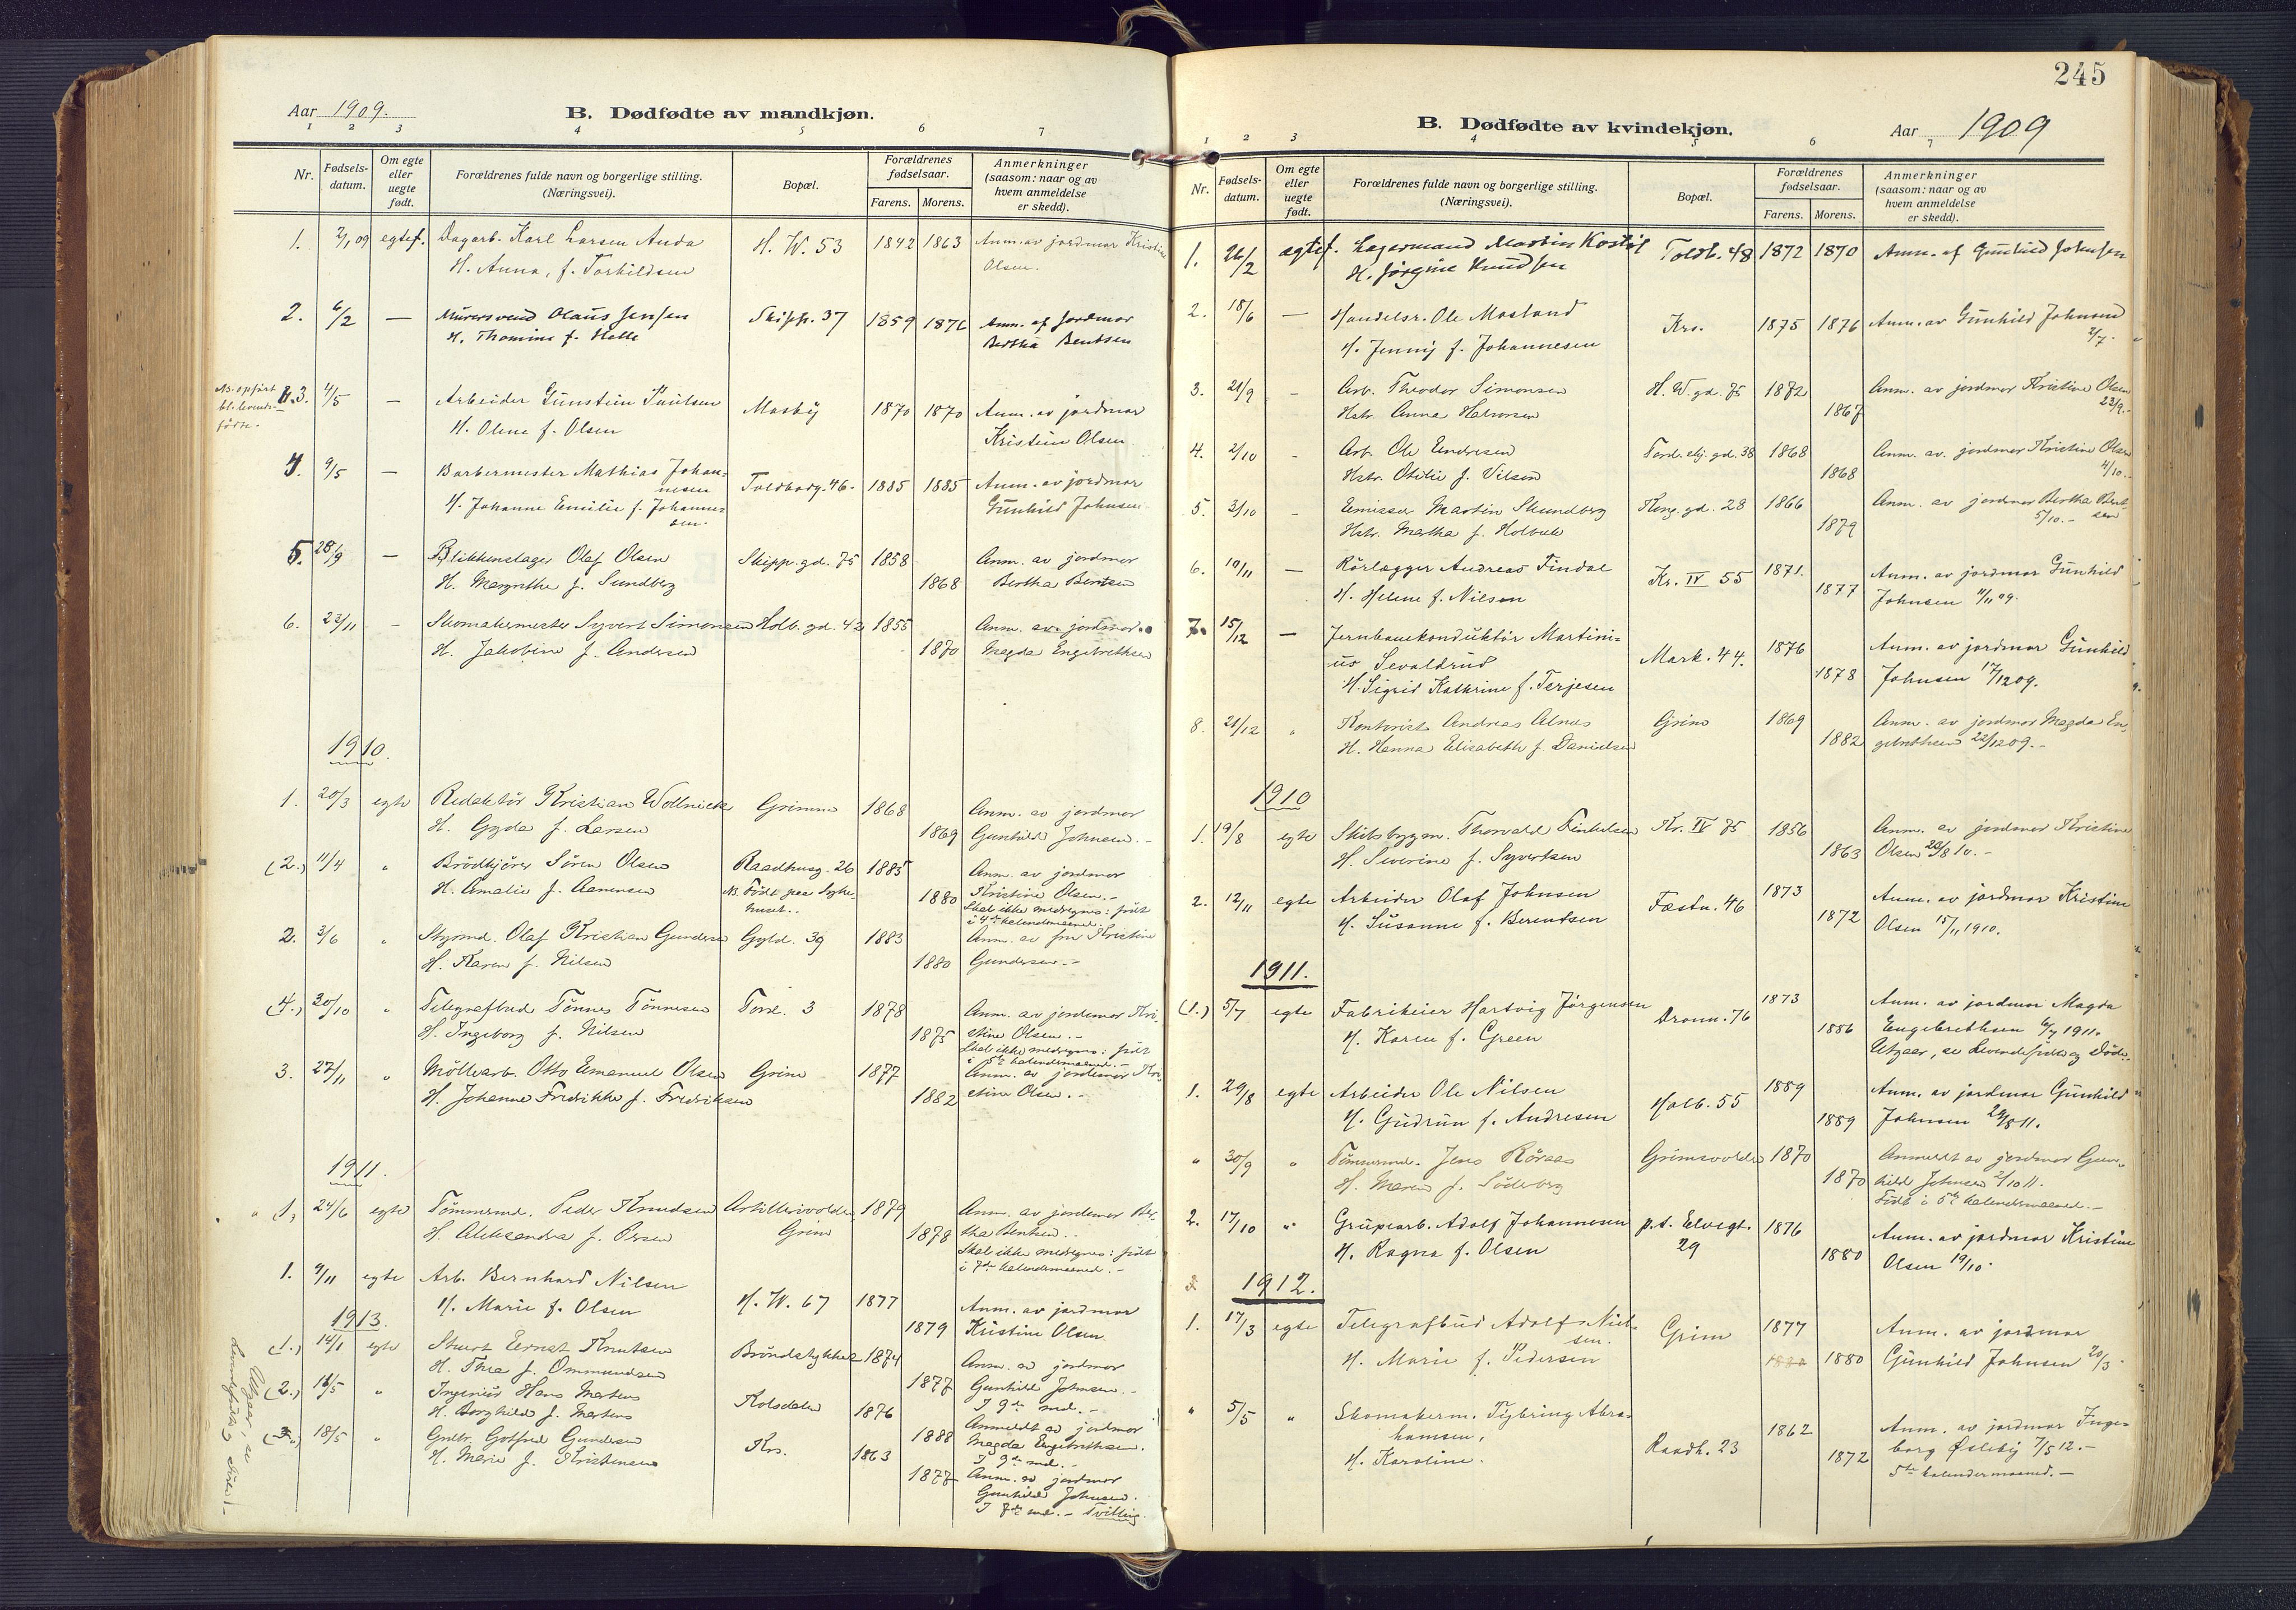 Aar 1909.
B. Dødfødte av mandkjøn.
1 2 3 4 5 6 7
Nr.
Fødsels-datum.
Om egte eller uegte født.
Forældrenes fulde navn og borgerlige stilling.
(Næringsvei).
Bopæl.
Forældrenes fødselsaar.
Farens. Morens.
Anmerkninger
(saasom: naar og av
hvem anmeldelse
er skedd).
1. 2/1 09 egtef. Dagarb. Karl Larsen Anda H. W. 53 1842 1863 Anm. av jordmor Kristine
H. Anna, f. Torkildsen Olsen.
2. 6/2 — Murersvend Olaus Jensen Skipp. 37 1859 1876 Anm. af Jordmor
H. Thomine f. Helle Bertha Bentsen
3. 4/5 — Arbeider Gunstein Paulsen Mosby 1870 1870 Anm. av jordmor
H. Olene f. Olsen Kristine Olsen
4. 9/5 — Barbermester Mathias Johan-
nesen Toldbodg. 46. 1885 1885 Anm. av jordmor
H. Johanne Emilie f. Johanne-
sen. Gunhild Johnsen
5. 28/9 — Blikkenslager Olaf Olsen Skipp. gd. 75 1858 Anm. av jordmor
H. Margrethe f. Sundberg 1868 Bertha Bentsen
6. 23/11 – Skomakermester Syvert Simonsen Holb. gd. 42 1855 Anm. av jordmor
H. Jakobine f. Andersen 1870 Magda Engebrethsen
1910.
1. 20/3 egte Redaktør Kristian Wollnick Grimm 1868 Anm. av jordmor
H. Gyda f. Larsen 1869 Gunhild Johnsen. –
(2.) 11/4 " Brødkjører Søren Olsen Raadhusg. 26 1885 Anm. av jordmor
H. Amalie f. Aanensen N. Født paa Syke-
huset.. 1880 Kristine Olsen. –
Skal ikke medregnes: født
i 4de kalendermaaned.
2. 3/6 " Styrmd. Olaf Kristian Gundersen Gyld. 39 1883 Anm. av fru Kristine
H. Karen f. Nilsen 1880 Gundersen. –
(4.) 30/10 " Telegrafbud Tønnes Tønnesen Tord. 3 1878 Anm. av jordemor Kri-
H. Ingeborg f. Nilsen 1875 stine Olsen. –
Skal ikke medregnes: født
i 5te kalendermaaned. –
3. 27/11 " Møllearb. Otto Emanuel Olsen Grim 1877 Anm. av jordemor Kri-
H. Johanne Fredrikke f. Fredriksen 1882 stine Olsen. –
1911.
(1.) 24/6 egte Tømmermd. Peder Knudsen Artillerivolden 1879 Anm. av jordemor Ber-
H. Aleksandra f. Olsen Grim 1878 tha Bentsen. –
Skal ikke medregnes: født
i 7de kalendermaaned. –
1. 9/11 egte Arb. Bernhard Nilsen
H. Marie f. Olsen H. W. 67 1877 Anm. av jordmor
1879 Kristine Olsen
1913.
(1.) 14/1 egte Stuert Ernst Knutsen Brøndstykket 1874 Anm. av jordmor
H. Thea f. Ommundsen 1877 Gunhild Johnsen. –
I 9de md. –
(2.) 16/5 " Ingeniør Hans Martens Kolsdalen 1876 Anmeldt av jordmor
H. Borghild f. Martens 1888 Magda Engebrethsen.
I 9de md. –
(3.) 18/5 " Gotfred Gundersen Krs. 1863 Anm. av jordmor
H. Marie f. Kristensen 1877 Gunhild Johnsen.
I 7de md. – Tvilling.
Utgaar, se
Levendefødte og Døde. –
245
B. Dødfødte av kvindekjøn.
Aar 1909
1 2 3 4 5 6 7
Nr.
Fødsels-datum.
Om egte eller uegte født.
Forældrenes fulde navn og borgerlige stilling.
(Næringsvei).
Bopæl.
Forældrenes fødselsaar.
Farens. Morens.
Anmerkninger
(saasom: naar og av
hvem anmeldelse
er skedd).
1. 26/2 egtef. Lagermand Martin Kostøl Toldb. 48 1872 1870 Anm. af Gunhild Johnsen
H. Jørgine Knudsen
2. 18/6 — Handelsr. Ole Mosland Krs. 1875 1876 Anm. av Gunhild Johnsen
H. Jenny f. Johannesen 2/7.
3. 21/9 – Arb. Theodor Simonsen H. W. gd. 75 1872 Anm. av jordmor Kristine Olsen
Hstr. Anna Halvorsen 1867 23/9. –
4. 2/10 – Arb. Ole Andresen Tord. skj. gd. 38 1868 Anm. av. jordmor Kristine Olsen
Hstr. Otilie f. Vilsen 1868 4/10. –
5. 3/10 – Emissær Martin Skundberg Kong. gd. 28 1866 Anm. av jordmor Bertha Bent-
sen
Hstr. Martha f. Holbæk 1879 5/10. –
6. 10/11 — Rørlægger Andreas Findal Kr. IV 55 1871. Anm. av jordmor Gunhild
H. Helene f. Nilsen 1877 Johnsen 11/11 09.
7. 15/12 — Jernbanekonduktør Martini-
us Sevaldrud Mark. 44. 1876 Anm. av jordmor Gunhild
H. Sigrid Kathrine f. Terjesen 1878 Johnsen 17/12 09.
8. 21/12 " Kontorist Andreas Alnæs Grim 1869 Anm. av jordmor Magda En-
H. Hanna Elisabeth f. Danielsen 1882 gebrethsen 22/12 09. –
1910
1. 19/8 egte Skibsbygm. Thorvald Terkelsen Kr. IV 75 1856 Anm. av jordmor Kristine
H. Severine f. Syvertsen 1863 Olsen 20/8 10. –
2. 12/11 egte Arbeider Olaf Johnsen Fæstn. 46 1873 Anm. av jordmor Kristine
H. Susanne f. Berentsen 1872 Olsen 15/11 1910.
1911.
(1.) 5/7 egte Fabrikeier Hartvig Jørgensen Dronn. 76 1873 Anm. av jordmor Magda
H. Karen f. Green 1886 Engebrethsen 6/7 1911.
Utgaar, se Levendefødte og Døde.
1. 29/8 egte Arbeider Ole Nilsen Holb. 55 1889 Anm. av jordmor Gunhild
H. Gudrun f. Andresen 1889 Johnsen 29/8 11.
" 30/9 " Tømmermd. Jens Røraas Grimsvolden 1870 Anmeldt av jordmor Gun-
H. Maren f. Söderberg 1870 hild Johnsen 2/10 11.
Født i 5te kalendermaaned. –
2. 17/10 " Grubearb. Adolf Johannesen p. t. Elvegt.
29 1876 Anm. av jordmor Kristine
H. Ragna f. Olsen 1880 Olsen 19/10.
2 1912.
1. 17/3 egte Telegrafbud Adolf Niel-
sen. Grim 1877 Anm. av jordmor
H. Marie f. Pedersen 1880 Gunhild Johnsen 20/3.
" 5/5 " Skomakerm. Tybring Abra-
hamsen, Raadh. 23 1862 Anm. av jordmor Inge-
H. Karoline. 1872 borg Øslebÿ 7/5 12. –
5te kalendermaaned. –